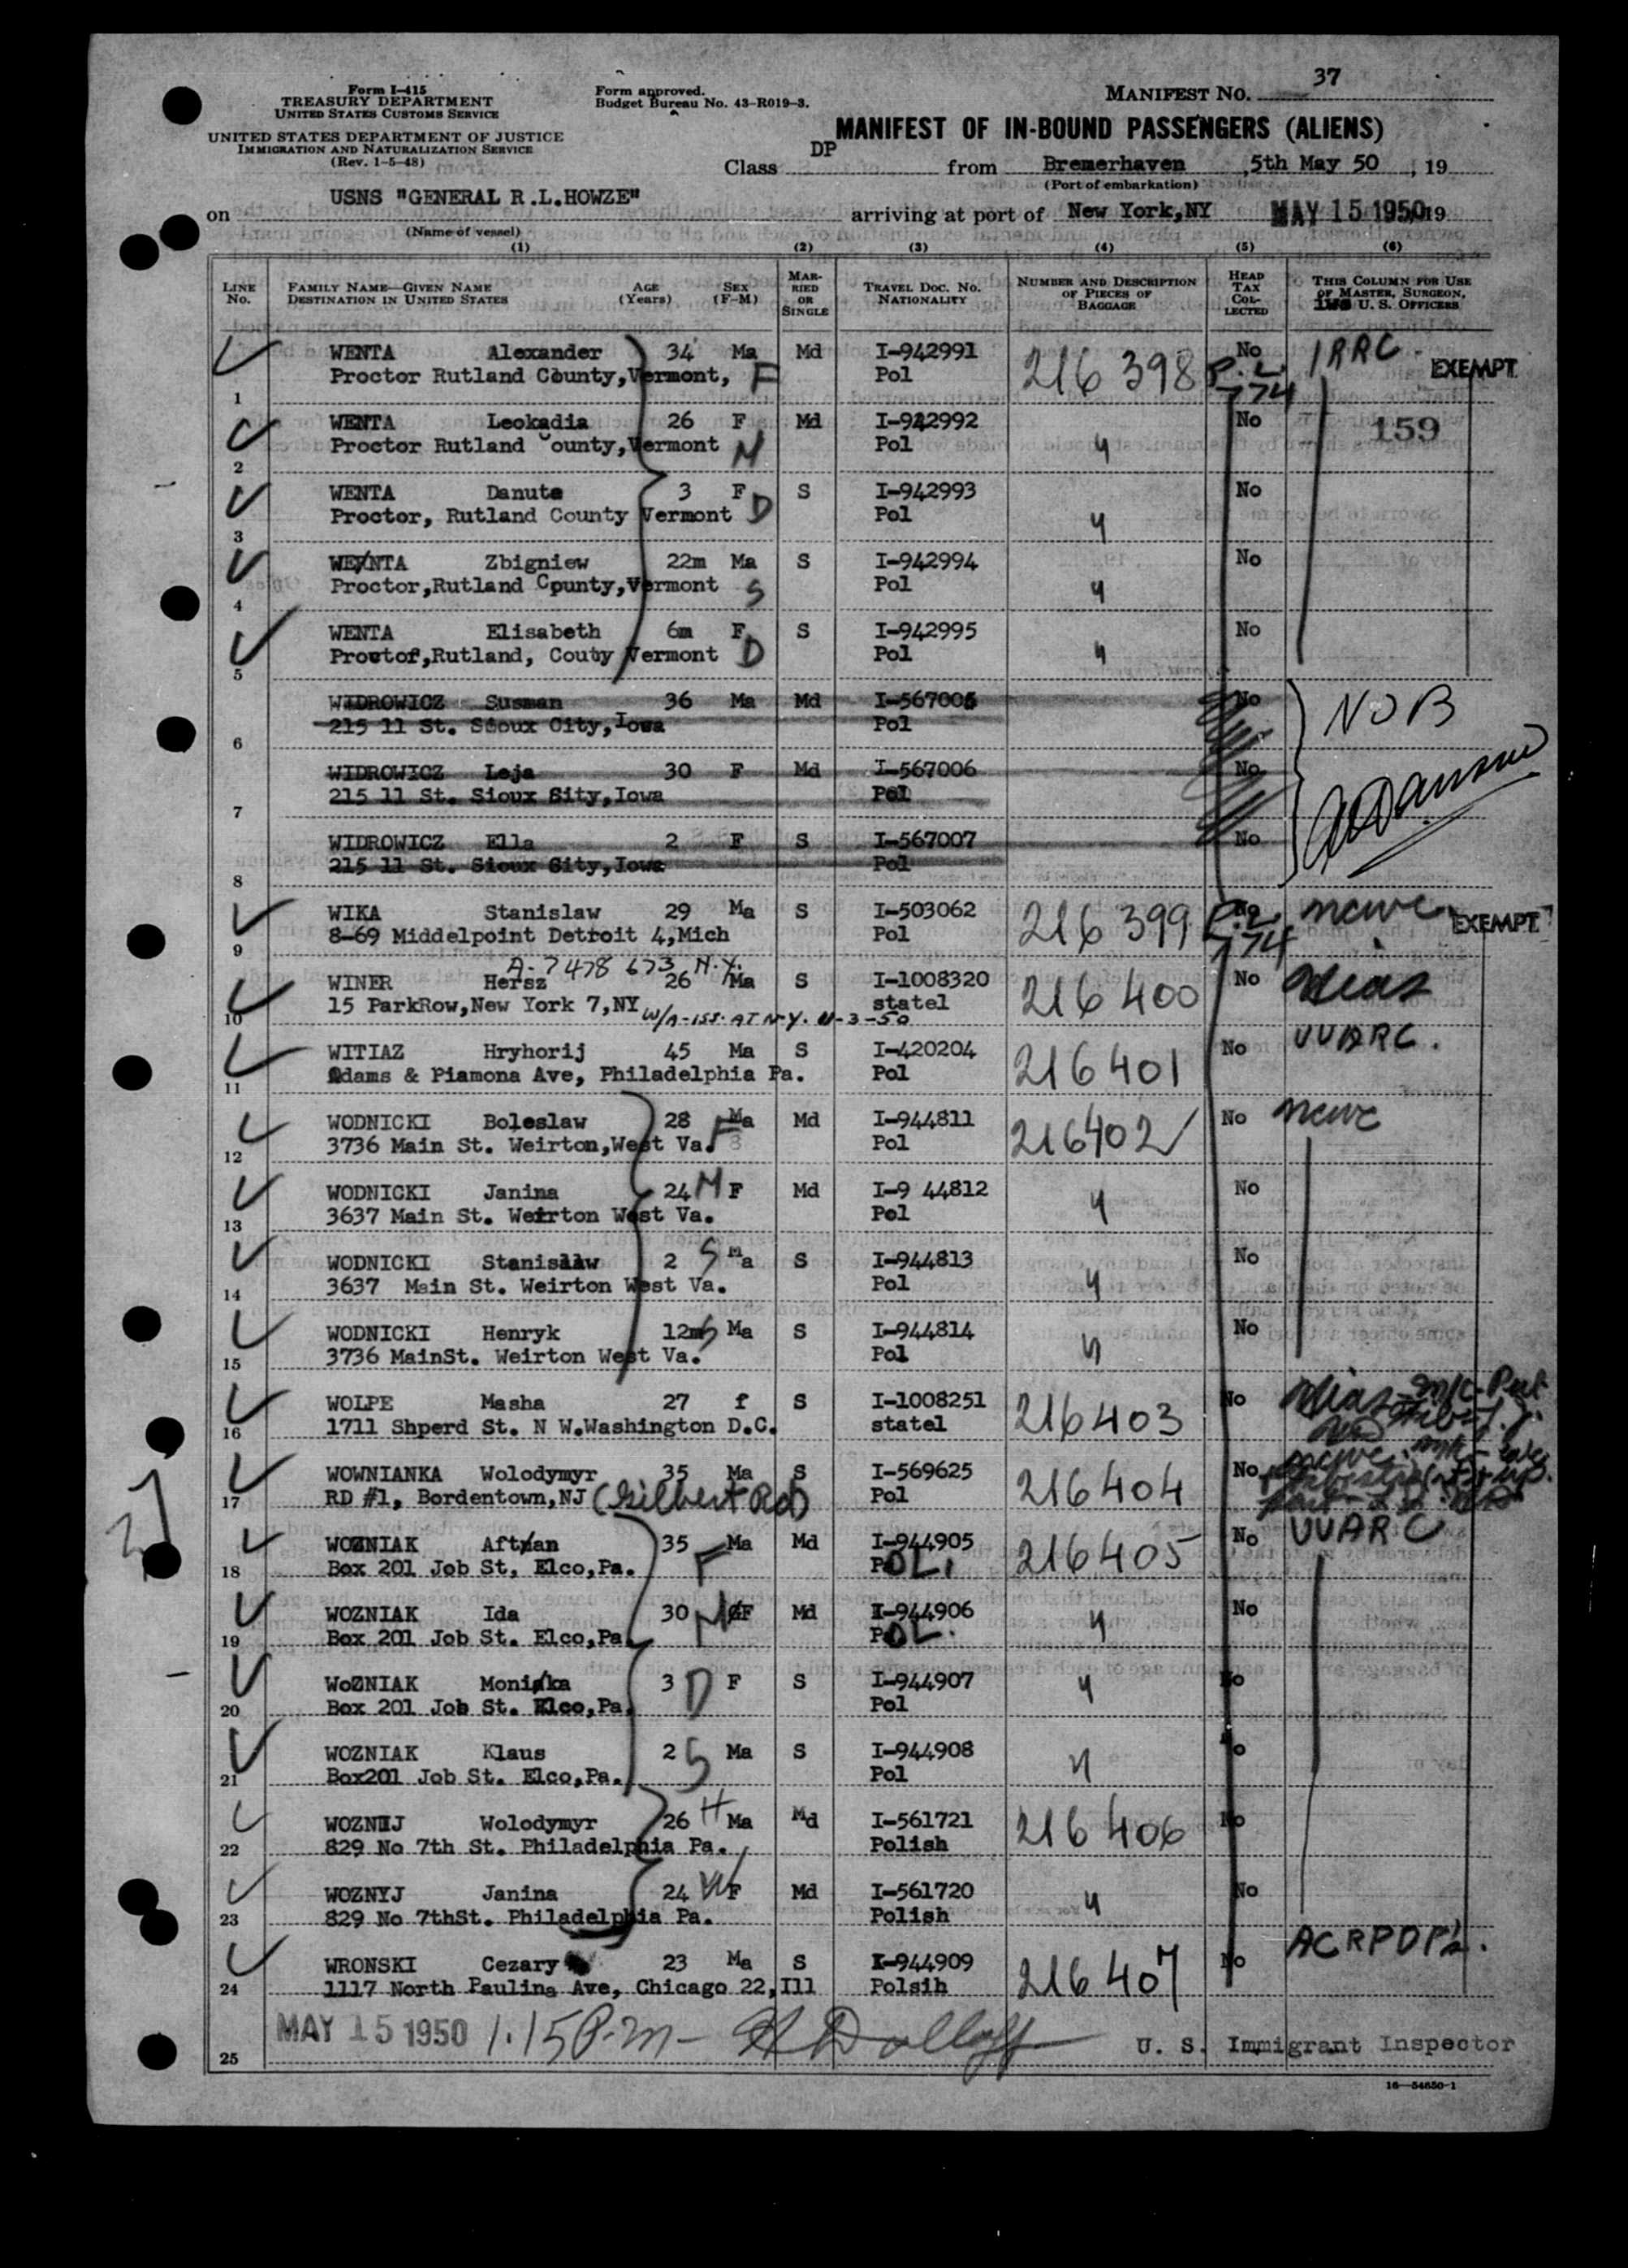 Form I-415
TREASURY DEPARTMENT
UNITED STATES CUSTOMS SERVICE
UNITED STATES DEPARTMENT OF JUSTICE
IMMIGRATION AND NATURALIZATION SERVICE
(Rev. 1-5-48)
Form approved.
Budget Bureau No. 43-R019-3.
MANIFEST NO. 37
MANIFEST OF IN-BOUND PASSENGERS (ALIENS)
Class DP from Bremerhaven ,5th May 50 , 19
(Port of embarkation)
on USNS "GENERAL R.L.HOWZE" arriving at port of New York,NY MAY 15 1950 19
(Name of vessel)
(1) (2) (3) (4) (5) (6)
LINE NO. FAMILY NAME—GIVEN NAME DESTINATION IN UNITED STATES AGE (Years) SEX (F-M) MARRIED OR SINGLE TRAVEL DOC. NO. NATIONALITY NUMBER AND DESCRIPTION OF PIECES OF BAGGAGE HEAD TAX COLLECTED THIS COLUMN FOR USE OF MASTER, SURGEON, U. S. OFFICERS
WENTA Alexander 34 Ma Md I-942991 216398 No IRRC EXEMPT
1 Proctor Rutland County,Vermont, F Pol P.L. 774
WENTA Leokadia 26 F Md I-942992 No 159
2 Proctor Rutland County,Vermont M Pol "
WENTA Danute 3 F S I-942993 No
3 Proctor, Rutland County Vermont D Pol "
WENTA Zbigniew 22m Ma S I-942994 No
4 Proctor,Rutland Cpunty,Vermont S Pol "
WENTA Elisabeth 6m F S I-942995 No
5 Provtof,Rutland, Couty Vermont D Pol "
WIDROWICZ Susman 36 Ma Md I-567005 No NOB
6 215 11 St. Sioux City,Iowa Pol
WIDROWICZ Leja 30 F Md I-567006 No
7 215 11 St. Sioux Sity,Iowa Pol
WIDROWICZ Ella 2 F S I-567007 No
8 215 11 St. Sioux Sity,Iowa Pol
WIKA Stanislaw 29 Ma S I-503062 216399 No ncwc EXEMPT
9 8-69 Middelpoint Detroit 4,Mich Pol P.L. 774
A-7478 673 N.Y.
WINER Hersz 26 Ma S I-1008320 216400 No Hias
10 15 ParkRow,New York 7,NY W/A-ISS. AT N.Y. 11-3-50 statel
WITIAZ Hryhorij 45 Ma S I-420204 216401 No UUARC.
11 Adams & Piamona Ave, Philadelphia Pa. Pol
WODNICKI Boleslaw 28 Ma Md I-944811 216402 No ncwc
12 3736 Main St. Weirton,West Va. F Pol
WODNICKI Janina 24 M F Md I-9 44812 No
13 3637 Main St. Weirton West Va. Pol "
WODNICKI Stanislaw 2 S Ma S I-944813 No
14 3637 Main St. Weirton West Va. Pol "
WODNICKI Henryk 12m S Ma S I-944814 No
15 3736 MainSt. Weirton West Va. Pol "
WOLPE Masha 27 f S I-1008251 216403 No Hias
16 1711 Shperd St. N W.Washington D.C. statel
WOWNIANKA Wolodymyr 35 Ma S I-569625 216404 No
17 RD #1, Bordentown,NJ (Gilbert Rd) Pol
WOZNIAK Aftan 35 Ma Md I-944905 216405 No UUARC
18 Box 201 Job St, Elco,Pa. F POL.
WOZNIAK Ida 30 M F Md I-944906 No
19 Box 201 Job St. Elco,Pa. POL. "
WoZNIAK Monika 3 D F S I-944907 No
20 Box 201 Job St. Elco,Pa. Pol "
WOZNIAK Klaus 2 S Ma S I-944908 No
21 Box201 Job St. Elco,Pa. Pol "
WOZNIJ Wolodymyr 26 H Ma Md I-561721 216406 No
22 829 No 7th St. Philadelphia Pa. Polish
WOZNYJ Janina 24 W F Md I-561720 No
23 829 No 7thSt. Philadelphia Pa. Polish "
WRONSKI Cezary 23 Ma S I-944909 216407 No ACRPDP's.
24 1117 North Paulina Ave, Chicago 22,Ill Polsih
25 MAY 15 1950 1.15 P.m- U. S. Immigrant Inspector
16—54650-1